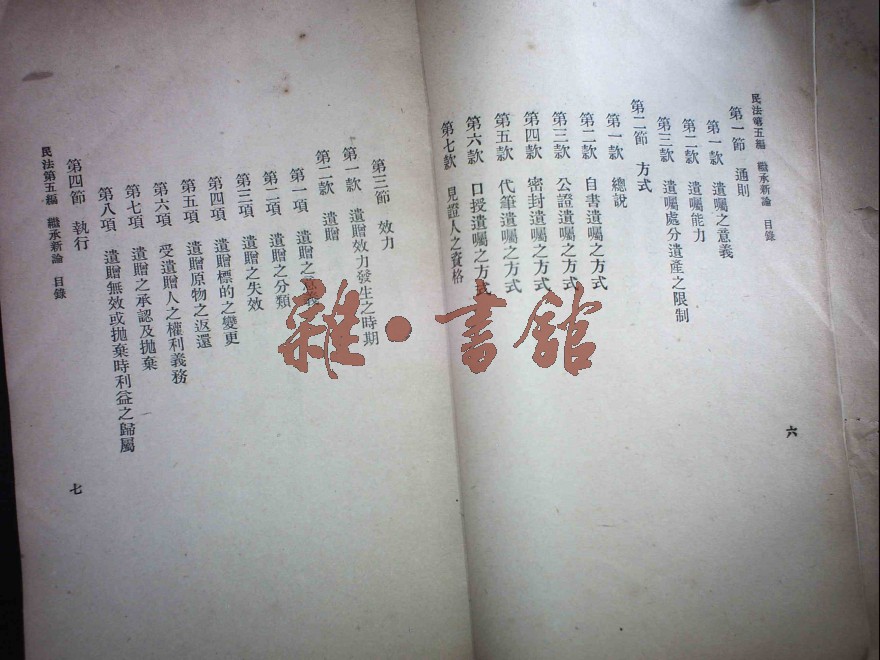 民法第五編 繼承新論 目錄
第一節 通則
第一款 遺囑之意義
第二款 遺囑能力
第三款 遺囑處分遺產之限制
第二節 方式
第一款 總說
第二款 自書遺囑之方式
第三款 公證遺囑之方式
第四款 密封遺囑之方式
第五款 代筆遺囑之方式
第六款 口授遺囑之方式
第七款 見證人之資格
六
第三節 效力
第一款 遺囑效力發生之時期
第二款 遺贈
第一項 遺贈之意義
第二項 遺贈之分類
第三項 遺贈之失效
第四項 遺贈標的之變更
第五項 遺贈原物之返還
第六項 受遺贈人之權利義務
第七項 遺贈之承認及拋棄
第八項 遺贈無效或拋棄時利益之歸屬
第四節 執行
民法第五編 繼承新論 目錄
七
雜·書館